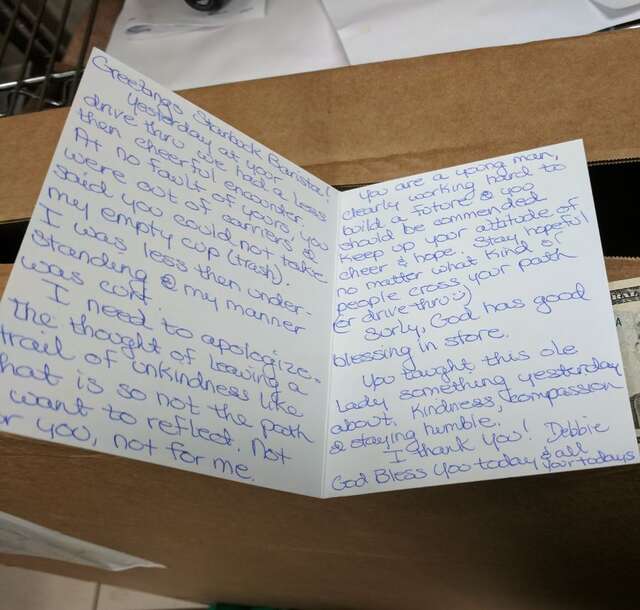 Greetings Starbuck Barista!
Yesterday at your
drive thru we had a less
then cheerful encounter.
At no fault of yours, you
were out of carriers &
said you could not take
my empty cup (trash).
I was less then under-
standing & my manner
was curt.
I need to apologize.
The thought of leaving a
trail of unkindness like
that is so not the path
I want to reflect. Not
for you, not for me.
You are a young man,
clearly working hard to
build a future & you
should be commended
keep up your attitude of
cheer & hope. Stay hopeful
no matter what kind of
people cross your path
(or drive-thru :)
Surly, God has good
blessing in store.
You taught this ole
lady something yesterday
about, kindness, compassion
& staying humble.
I thank you! Debbie
God Bless You today & all
your todays